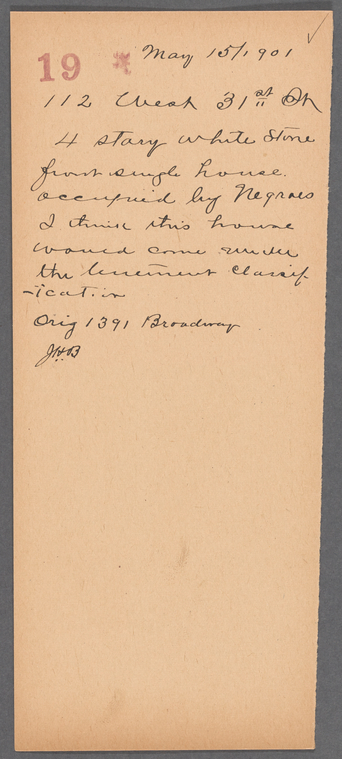 19 May 15/1901
112 West 31st St
4 story white Stone
front single house.
occupied by Negroes
I think this house
would come under
the tenement classif
-ication
Orig 1391 Broadway
JHB